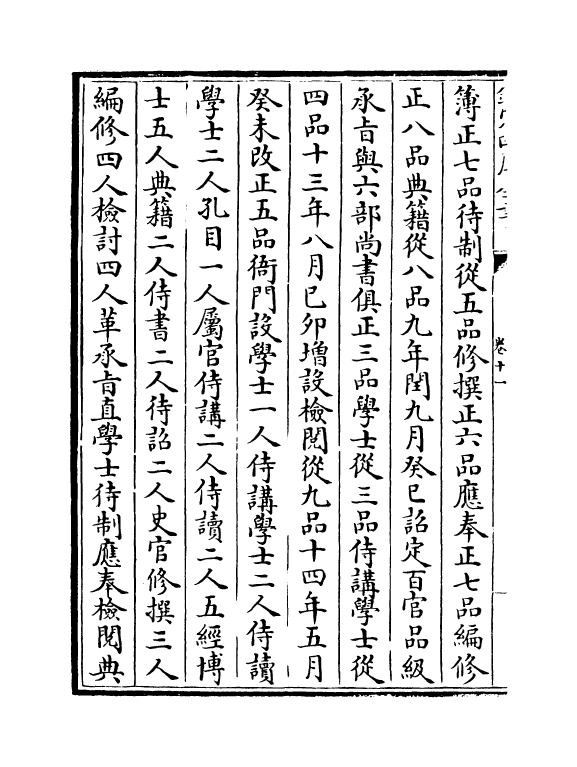 卷十一
簿正七品待制從五品修撰正六品應奉正七品編修
正八品典籍從八品九年閏九月癸巳詔定百官品級
承㫖與六部尚書俱正三品學士從三品侍講學士從
四品十三年八月己卯增設檢閲從九品十四年五月
癸未改正五品衙門設學士一人侍講學士二人侍讀
學士二人孔目一人屬官侍講二人侍讀二人五經博
士五人典籍二人侍書二人待詔二人史官修撰三人
編修四人檢討四人革承㫖直學士待制應奉檢閲典